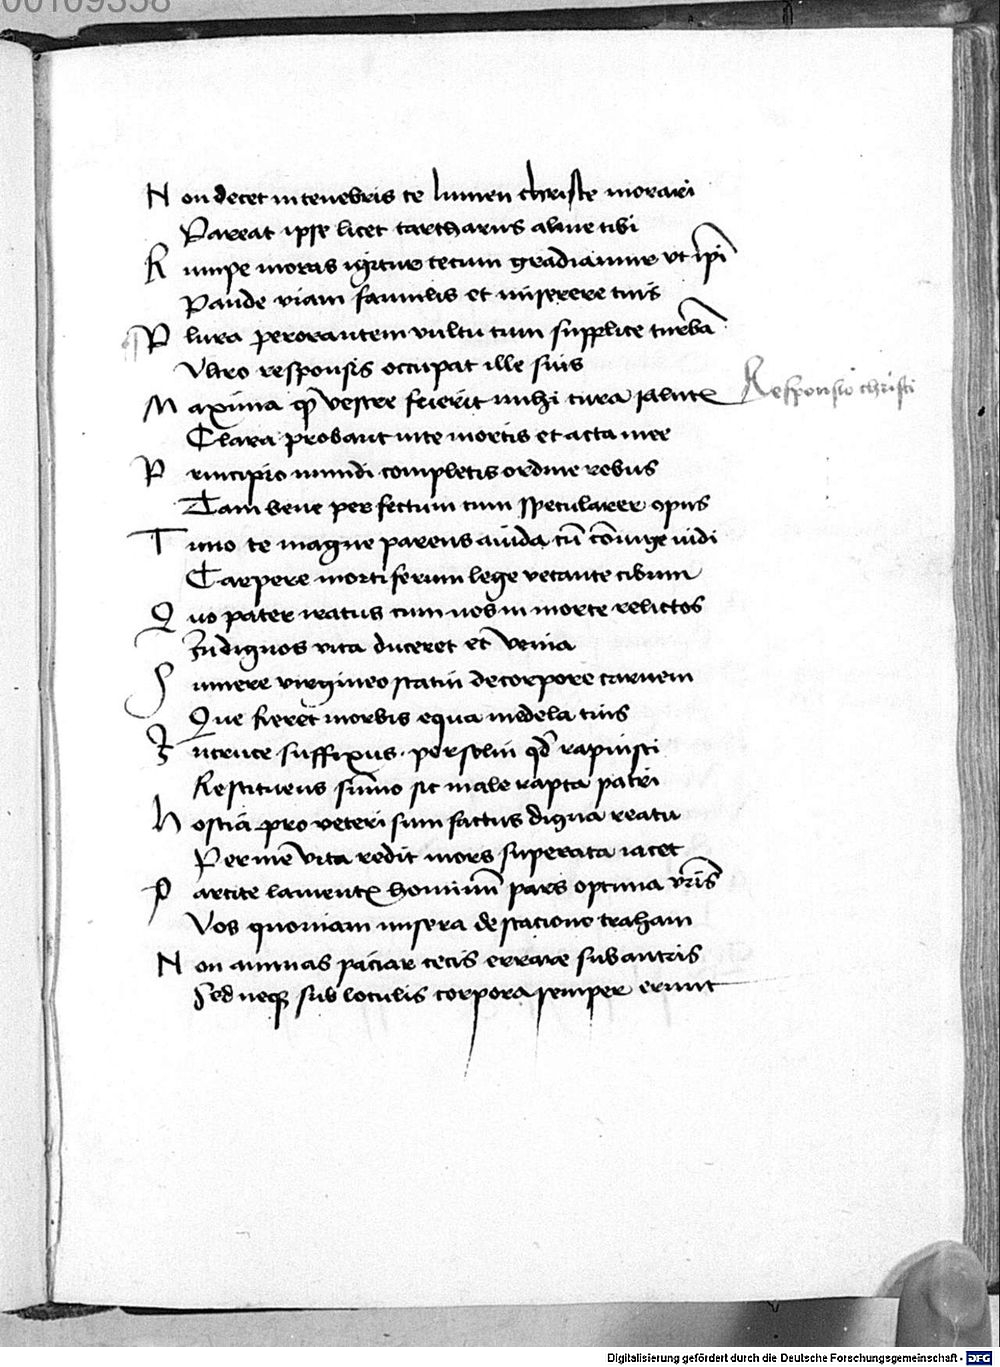 00109358
Non decet in tenebris te lumen christe morari
Pareat ipse licet tartharus alme tibi
Rumpe moras igitur tecum gradiamur ut ip̄i
Pande viam famulis et miserere tuis
Plura perorantem vultu cum supplice turbā
Vltro responsis occupat ille suis
Maxima qꝫ vestre fuerit mihi cura salutꝭ
Responsio christi
Clara probant vite mortis et acta mee
Principio mundi completis ordine rebus
Tam bene perfectum cum specularer opus
Tunc te magne parens auida cū cōiuge uidi
Carpere mortiferum lege vetante cibum
Quo pater iratus cum uos in morte relictos
Indignos vita duceret et venia
Sumere virgineo statui de corpore carnem
Que fieret morbis equa medela tuis
In cruce suffixus persolui qd̄ rapuisti
Restituens sūmo sic male rapta patri
Hostia pro veteri sum factus digna reatu
Per me vita redit mors superata iacet
Parcite lamentꝭ hominū pars optima vr̄is
Vos quoniam misera de stacione traham
Non animas paciar cecis errare sub antris
Sed neqꝫ sub loculis corpora semper erunt
Digitalisierung gefördert durch die Deutsche Forschungsgemeinschaft - DFG